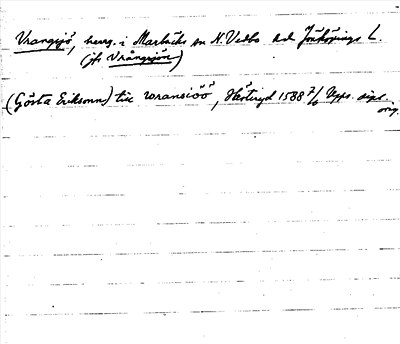 Vrangsjö, herrg. i Marbäcks sn N. Vedbo hd Jönköpings L.
(jfr Vrångsjön)
(Gösta Eriksonn) tiic wransiöö, Hesteryd 1588 7/6 Upps. dipl.
orig.